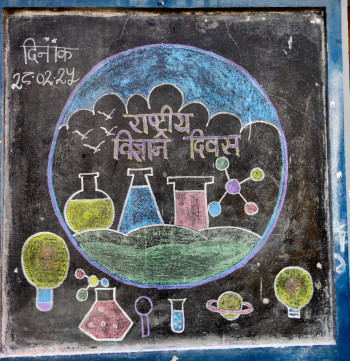 दिनांक
28.02.24
राष्ट्रीय
विज्ञान दिवस